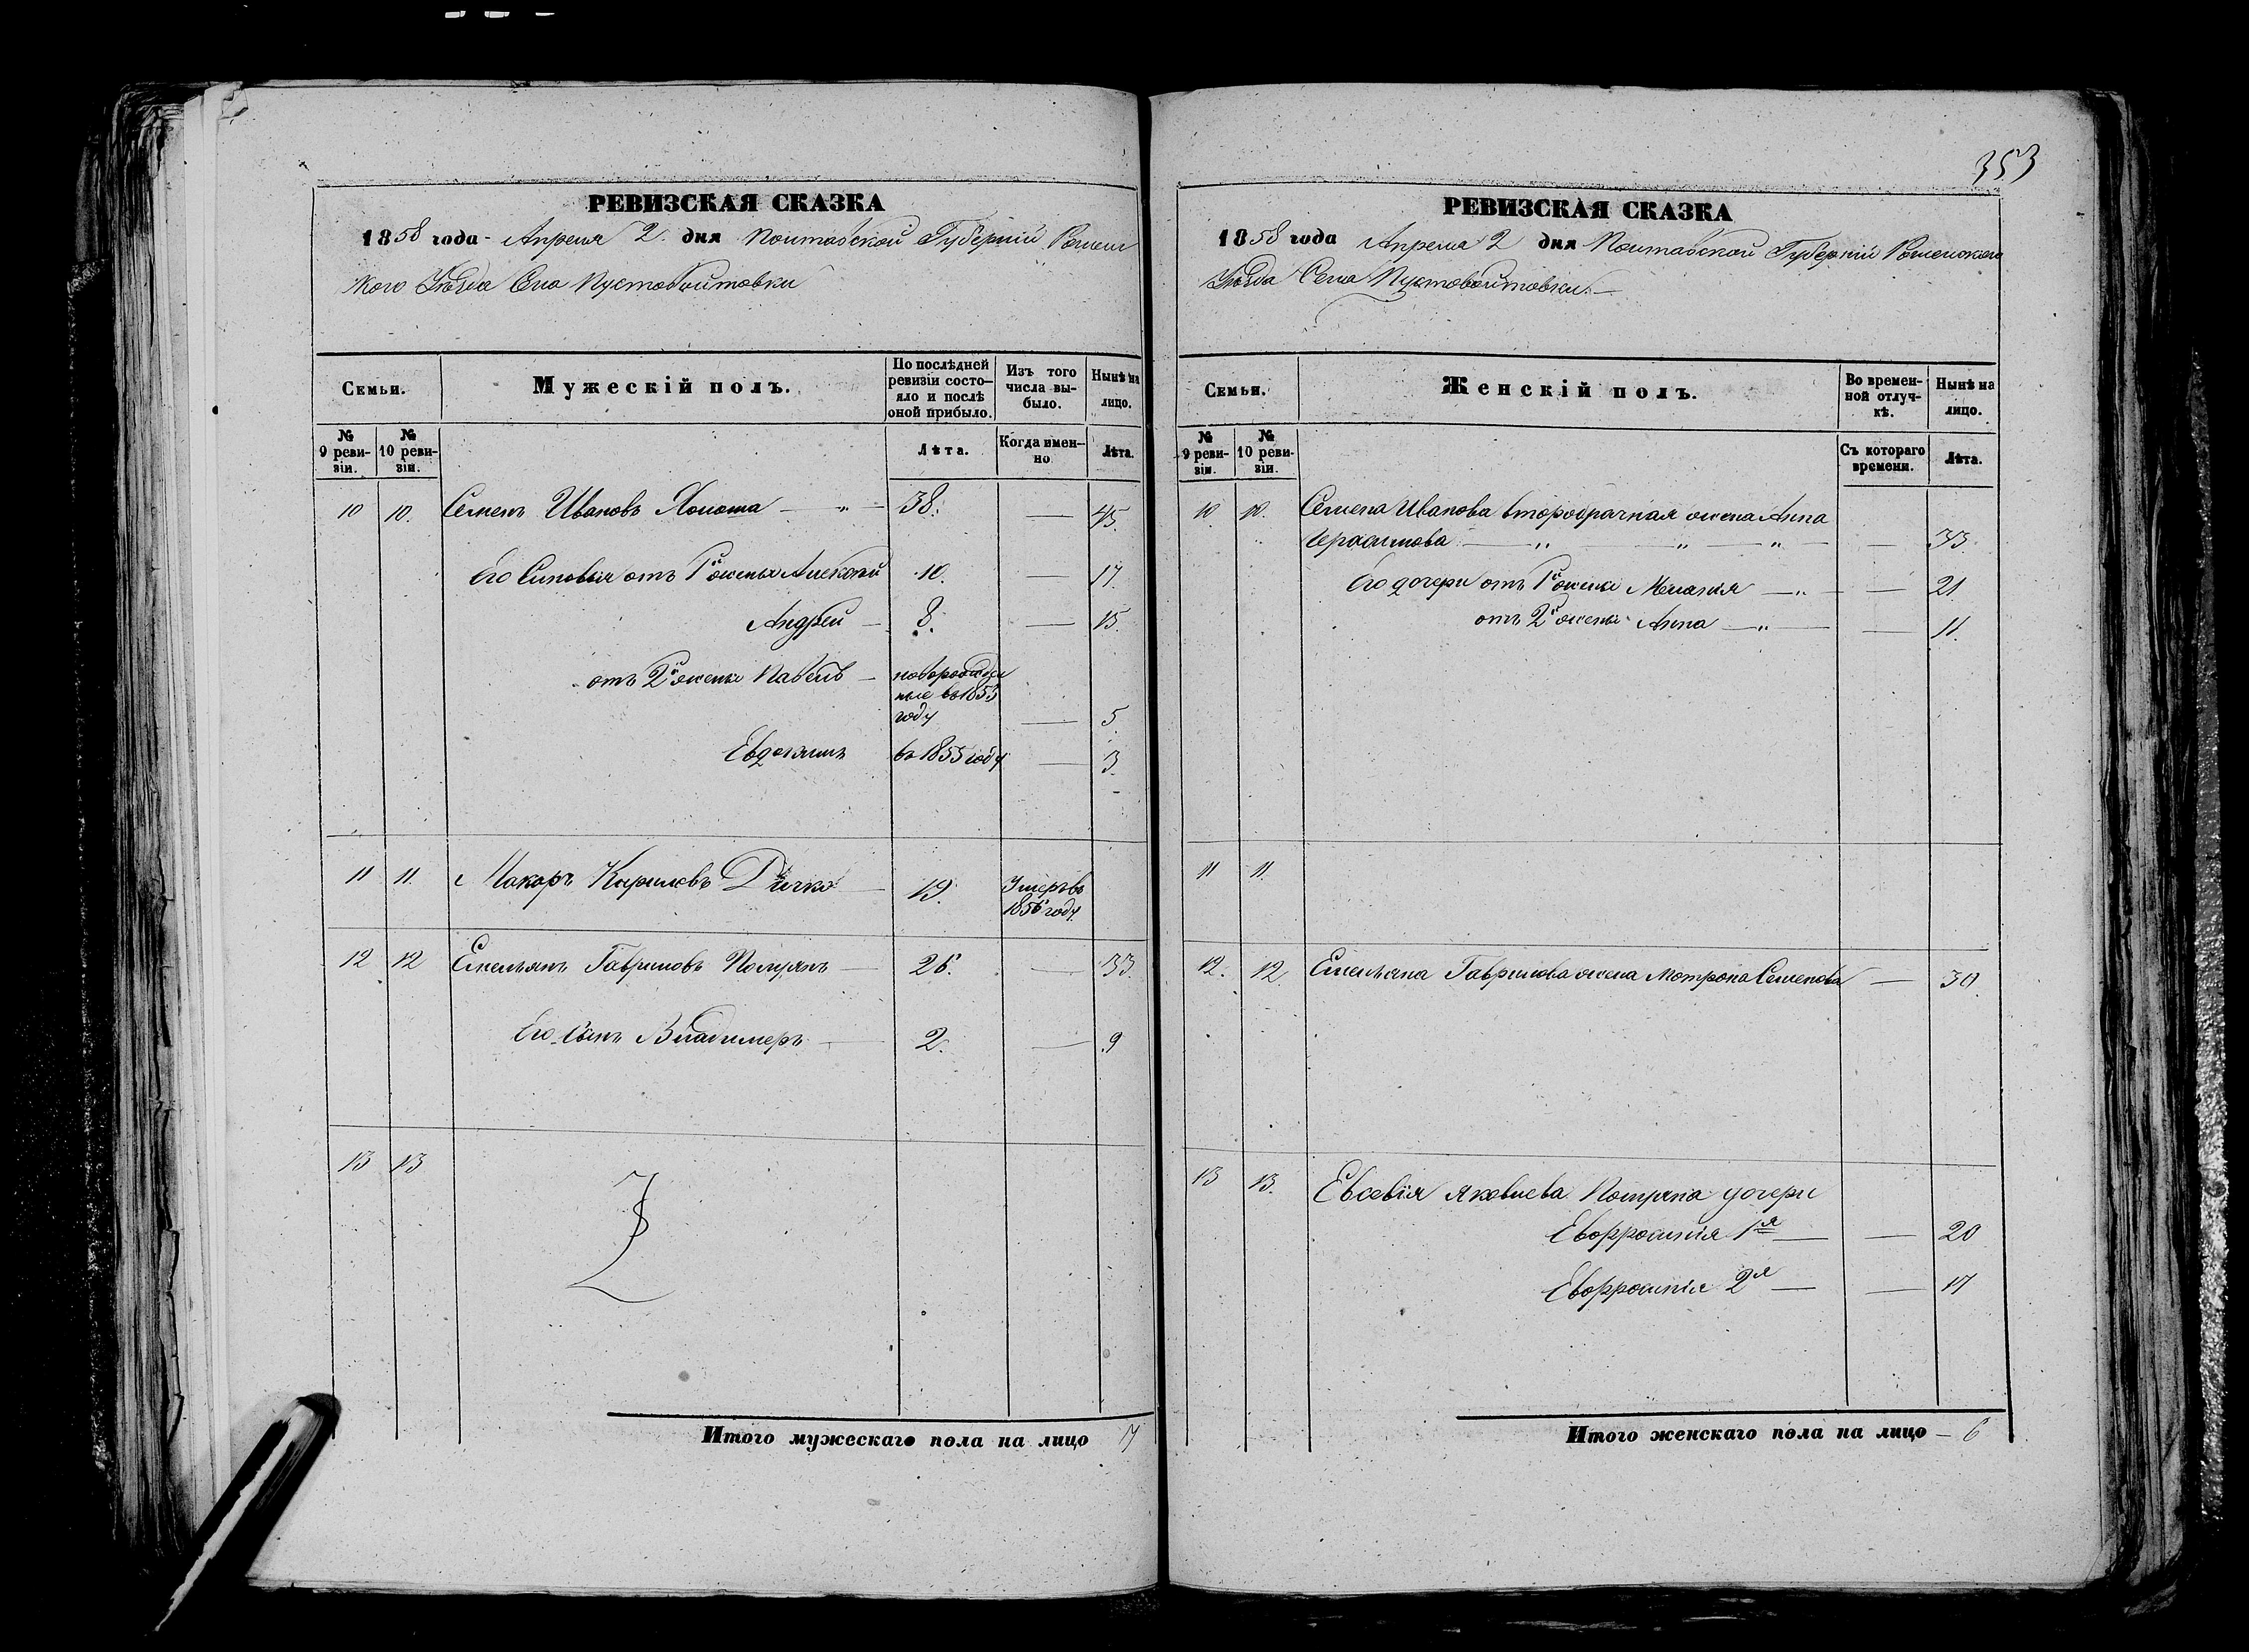 353
РЕВИЗСКАЯ СКАЗКА
1858 года Апреля 2 дня Полтавской Губерніи Роменс
кого Уѣзда Села Пустовойтовки
Семьи.
Мужескій полъ.
По послѣдней ревизіи состо-яло и послѣ оной прибыло.
Изъ того числа вы-было.
Нынѣ на лицо.
№ 9 реви-зіи.
№ 10 реви-зіи.
Лѣта.
Когда имен-но
Лѣта.
10 10. Семенъ Ивановъ Холоша — „ — 38. — 45.
Его Сыновья отъ 1й жены Алексѣй 10. — 17.
Андрей — 8. — 15.
отъ 2й жены Павелъ — новорожден
ные въ 1853
году — 5
Евдокимъ въ 1855 году — 3.
11 11. Макаръ Кириловъ Дичко — 19. Умеръ въ
1856 году
12 12 Емельянъ Гавриловъ Полулях — 26. — 33.
Его Сынъ Владимеръ — 2. — 9
13 13
Итого мужескаго пола на лицо 7
РЕВИЗСКАЯ СКАЗКА
1858 года Апреля 2 дня Полтавской Губерніи Роменского
Уѣзда Села Пустовойтовки. —
Семьи.
Женскій полъ.
Во времен-ной отлуч-кѣ.
Нынѣ на лицо.
№ 9 реви-зіи.
№ 10 реви-зіи.
Съ котораго времени.
Лѣта.
10. 10. Семена Иванова второбрачная жена Анна
Герасимова — „ — „ — „ — — 33.
Его дочери от 1й жены Меланія — „ — — 21.
отъ 2й жены Анна — „ — — 11.
11 11.
12. 12. Емельяна Гаврилова жена Мотрона Семенова — 30.
13 13. Евсевія Яковлева дочери
Евфросинія 1я — — 20
Евфросинія 2я — — 17
Итого женскаго пола на лицо — 6